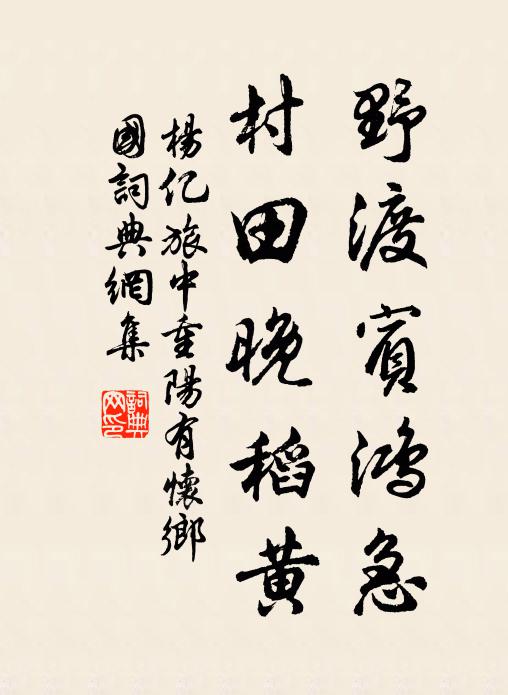 野渡賓鴻急
村田晚稻黃
楊亿旅中重陽有懷鄉
國詞典網集
詞典网印